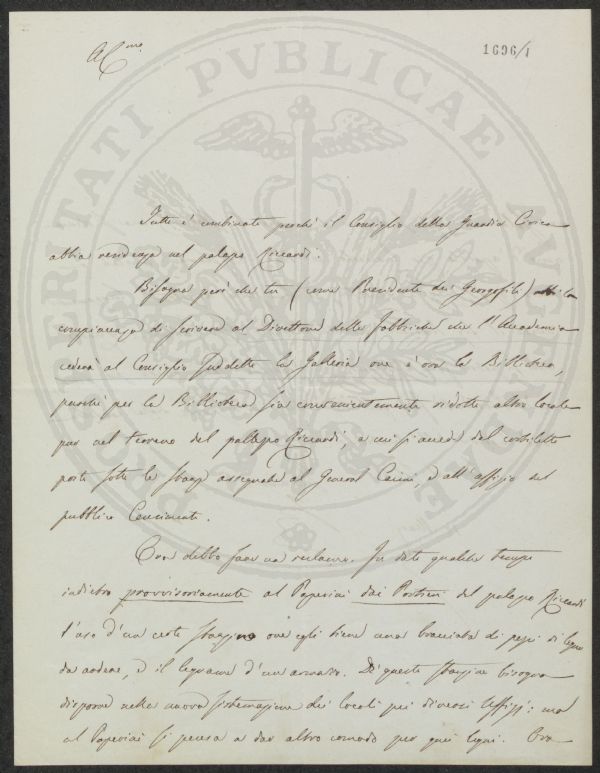 1696/1
PROSPERITATI PVBLICAE AVGENDAE
A C.mo
Tutto è combinato perché il Consiglio della Guardia Civica
abbia residenza nel palazzo Riccardi.
Bisogna però che tu (come Presidente dei Georgofili) abbi la
compiacenza di scrivere al Direttore delle fabbriche che l'Accademia
cederà al Consiglio suddetto la Galleria ove è ora la Biblioteca,
purché per la Biblioteca sia convenientemente ridotto altro locale
pur nel terreno del palazzo Riccardi, a cui si accede dal cortiletto
posto sotto le stanze assegnate al General e all'uffizio del
pubblico Censimento.
Ora debbo fare un reclamo. Fu dato qualche tempo
indietro provvisoriamente al Paperini dai Portieri del palazzo Riccardi
l'uso d'un certo stanzino ove egli tiene una bracciata di pezzi di legno
da ardere, e il legname d'un armadio. Di questo stanzino bisogna
disporre nella nuova sistemazione dei locali pei diversi uffizj: ma
al Paperini si pensa a dar altro comodo per quei legni. Ora